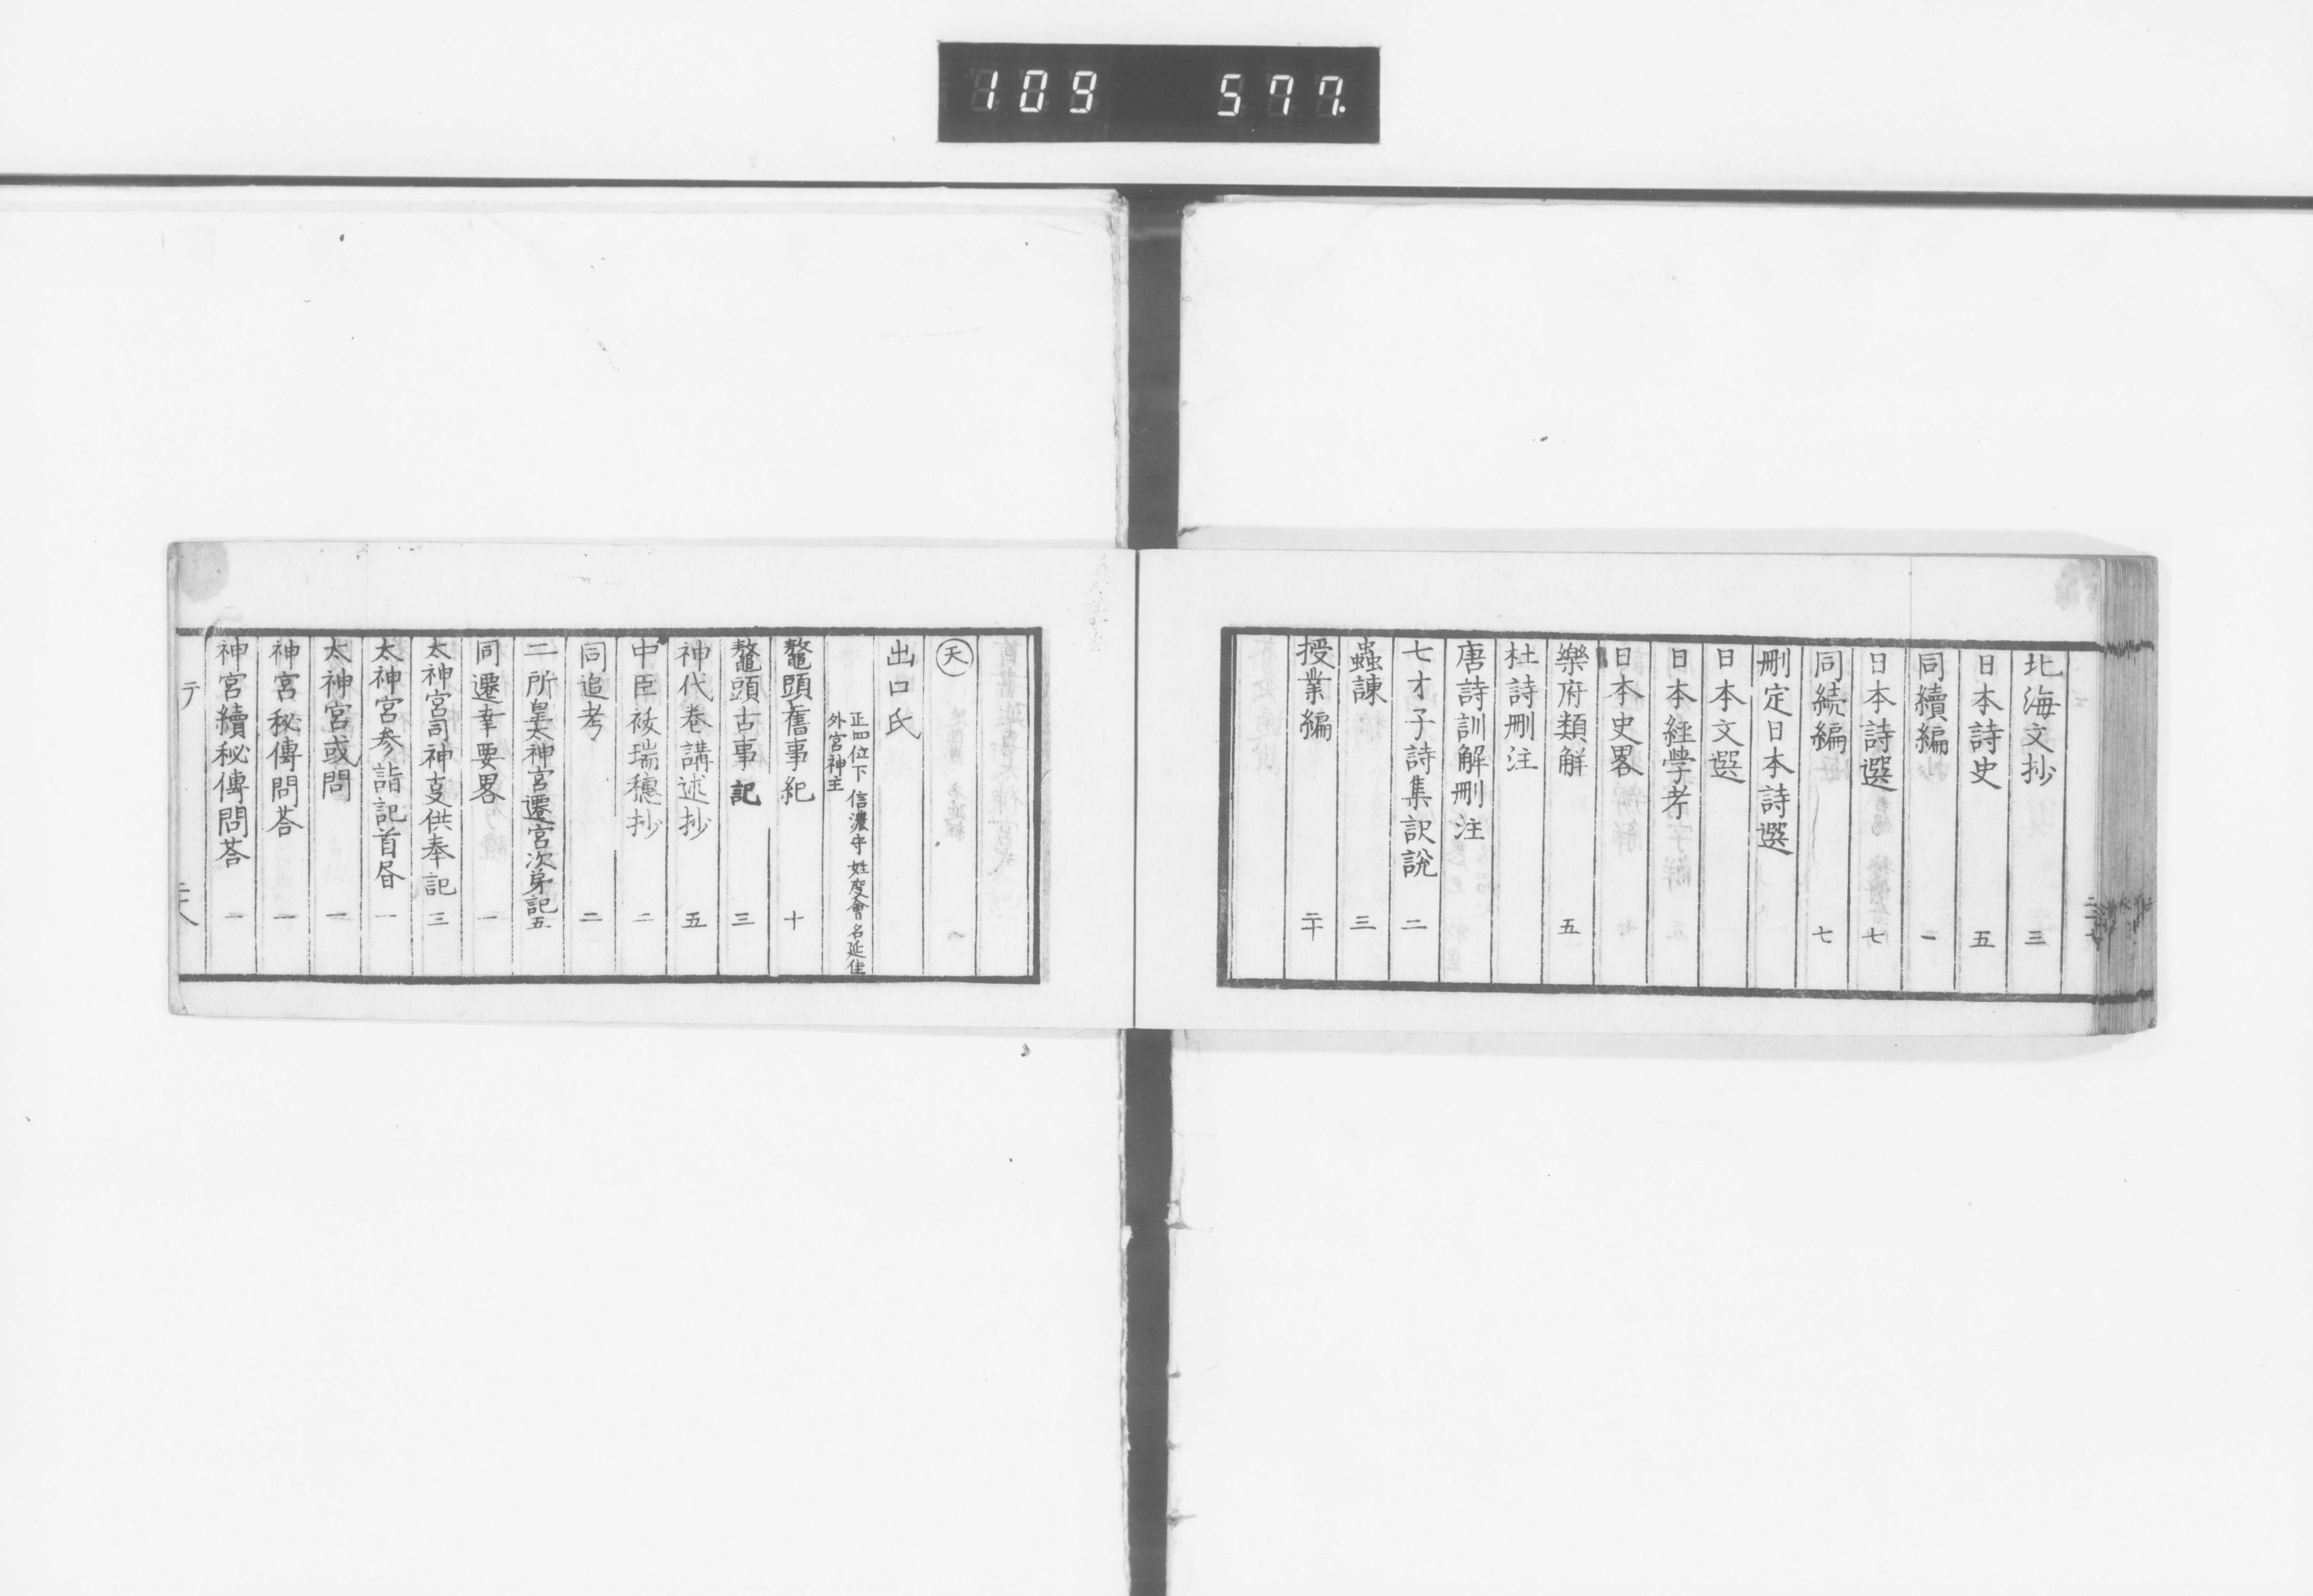 109 577.
北海文抄 三
日本詩史 五
同續編 一
日本詩選 七
同続編 七
刪定日本詩選
日本文選
日本経学考
日本史畧
樂府類解 五
杜詩刪注
唐詩訓解刪注
七才子詩集訳說 二
蟲諫 三
授業編 二十
天
出口氏
正四位下 信濃守 姓度會 名延佳
外宮神主
鼇頭舊事紀 十
鼇頭古事記 三
神代巻講述抄 五
中臣祓瑞穗抄 二
同追考 二
二所皇太神宮遷宮次第記 五
同遷幸要畧 一
太神宮司神支供奉記 三
太神宮参詣記首昏 一
太神宮或問 一
神宮秘傳問荅 一
神宮續秘傳問荅 一
テ